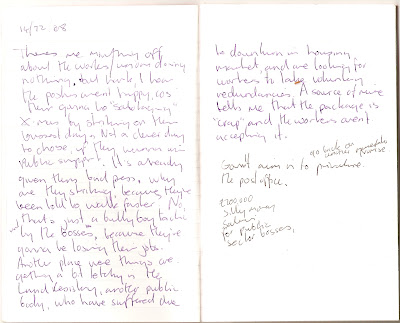 14/12 08
There's me, mouthing off
about the workers/unions doing
nothing, but hark, I hear
the posties aren't happy, cos
their gonna be "sabotaging"
X-mas by striking on their
busiest days. Not a clever day
to chose, if they wanna win
public support. It's already
given them bad press, why
are they striking, because they're
been told to walk faster. No,
that's just a bully boy tactic
by the bosses, because they're
gonna be losing their jobs.
Another place were things are
getting a bit tetchy is the
Land Registry, another public
body, who have suffered due
to downturn in housing
market, and are looking for
workers to take voluntary
redundancies. A source of mine
tells me that the package is
"crap" and the workers aren't
accepting it.
Govm't aim is to privatise
the post office,
go back on
£200000
Silly money
Salaries
for public
sector bosses,